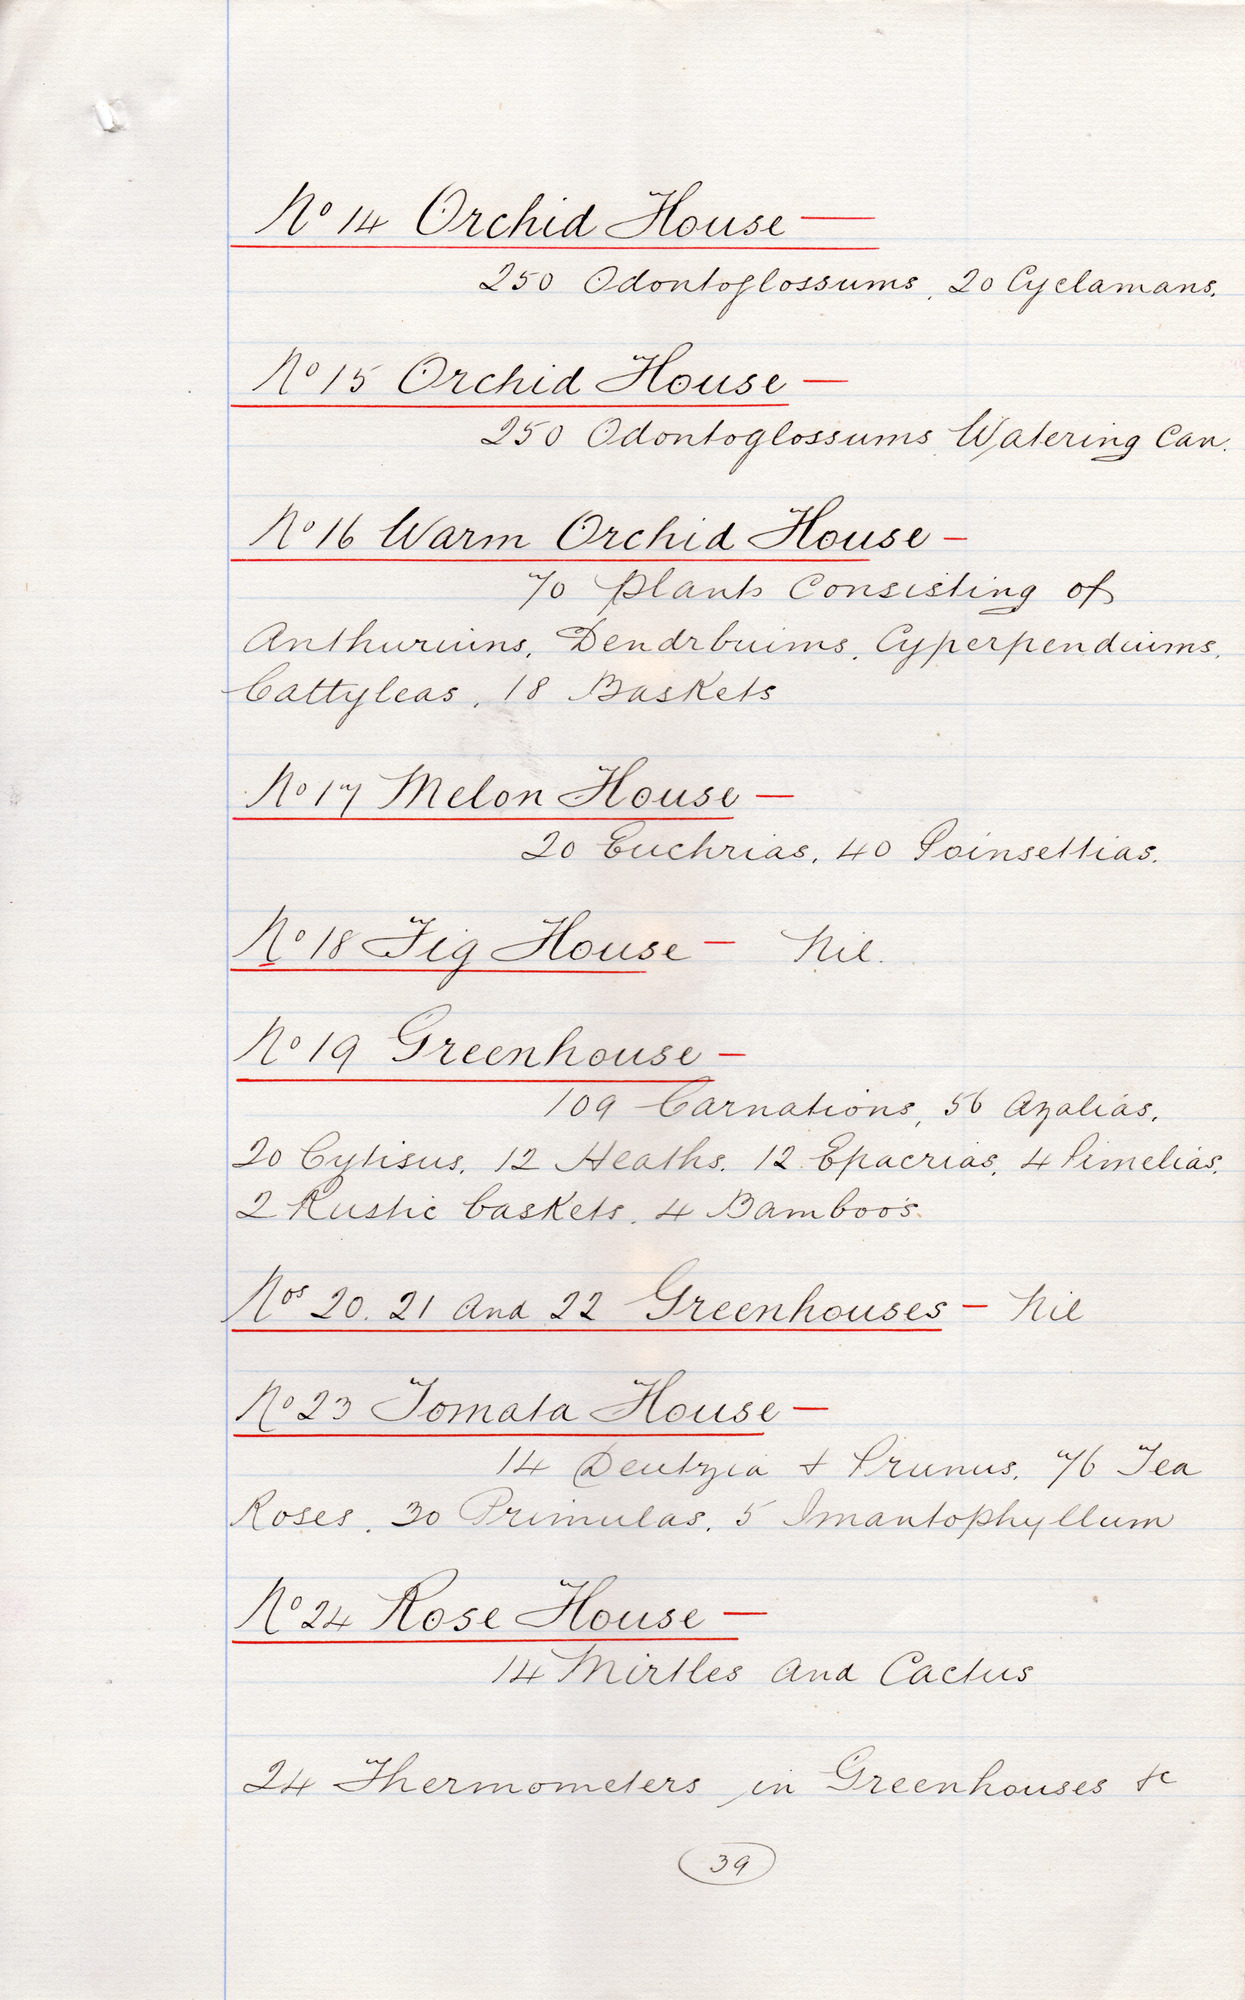 No 14 Orchid House —
250 Odontoglossums, 20 Cyclamans.
No 15 Orchid House —
250 Odontoglossums, Watering Can.
No 16 Warm Orchid House —
70 Plants Consisting of
Anthuriuns, Dendrbuims, Cyperpenduims,
Cattyleas, 18 Baskets
No 17 Melon House —
20 Euchrias, 40 Poinsettias.
No 18 Fig House — Nil.
No 19 Greenhouse —
109 Carnations, 56 Azalias,
20 Cytisus, 12 Heaths, 12 Epacrias, 4 Pimelias,
2 Rustic baskets, 4 Bamboo's.
Nos 20. 21 and 22 Greenhouses — Nil
No 23 Tomata House —
14 Deutzia & Prunus, 76 Tea
Roses, 30 Primulas, 5 Imantophyllum
No 24 Rose House —
14 Mirtles and Cactus
24 Thermometers in Greenhouses &c
39